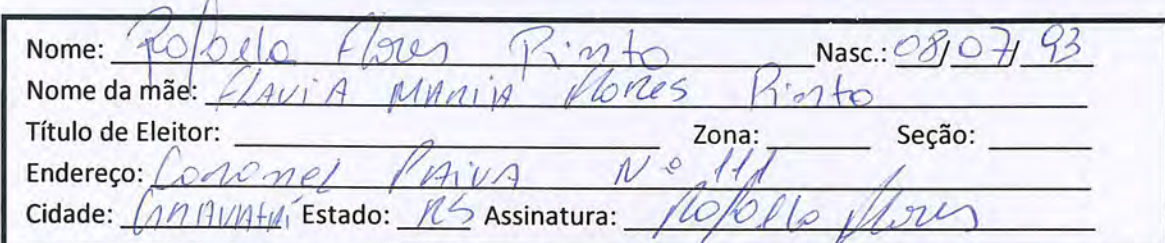 Nome: Rafaela Flores Pinto Nasc.: 08/07/93
Nome da mãe: FLAVIA MARIA Flores Pinto
Título de Eleitor: Zona: Seção:
Endereço: Coronel PAIVA Nº 111
Cidade: GRAVATAÍ Estado: RS Assinatura: Rafaela Flores